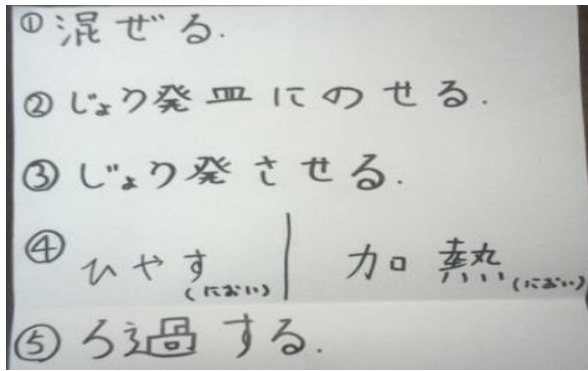 ①混ぜる.
②じょう発皿にのせる.
③じょう発させる.
④ひやす(におい)|加熱(におい)
⑤ろ過する.